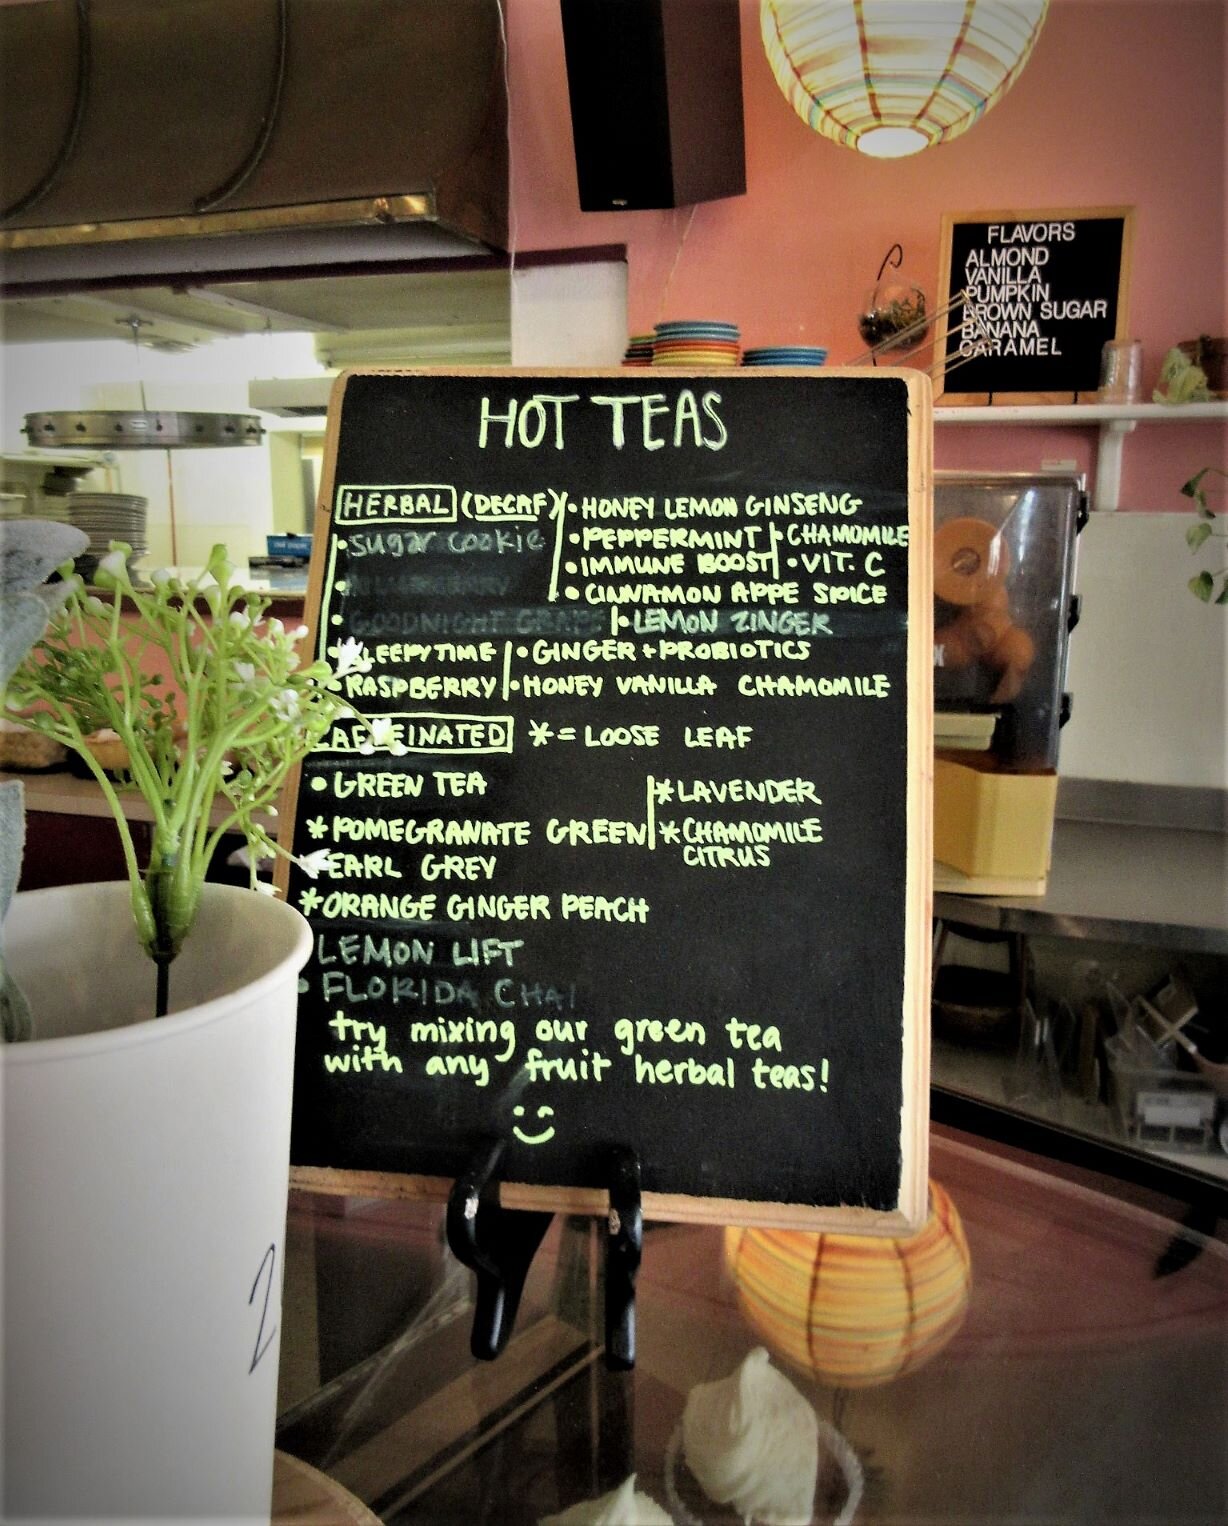 FLAVORS
ALMOND
VANILLA
PUMPKIN
BROWN SUGAR
BANANA
CARAMEL
HOT TEAS
HERBAL (DECAF) • HONEY LEMON GINSENG
• sugar cookie • PEPPERMINT • CHAMOMILE
• IMMUNE BOOST • VIT. C
• CINNAMON APPE SPICE
• GOODNIGHT GRAPE • LEMON ZINGER
• SLEEPYTIME • GINGER + PROBIOTICS
• RASPBERRY • HONEY VANILLA CHAMOMILE
CAFFEINATED * = LOOSE LEAF
• GREEN TEA * LAVENDER
* POMEGRANATE GREEN * CHAMOMILE
CITRUS
EARL GREY
* ORANGE GINGER PEACH
LEMON LIFT
• FLORIDA CHAI
try mixing our green tea
with any fruit herbal teas!
2